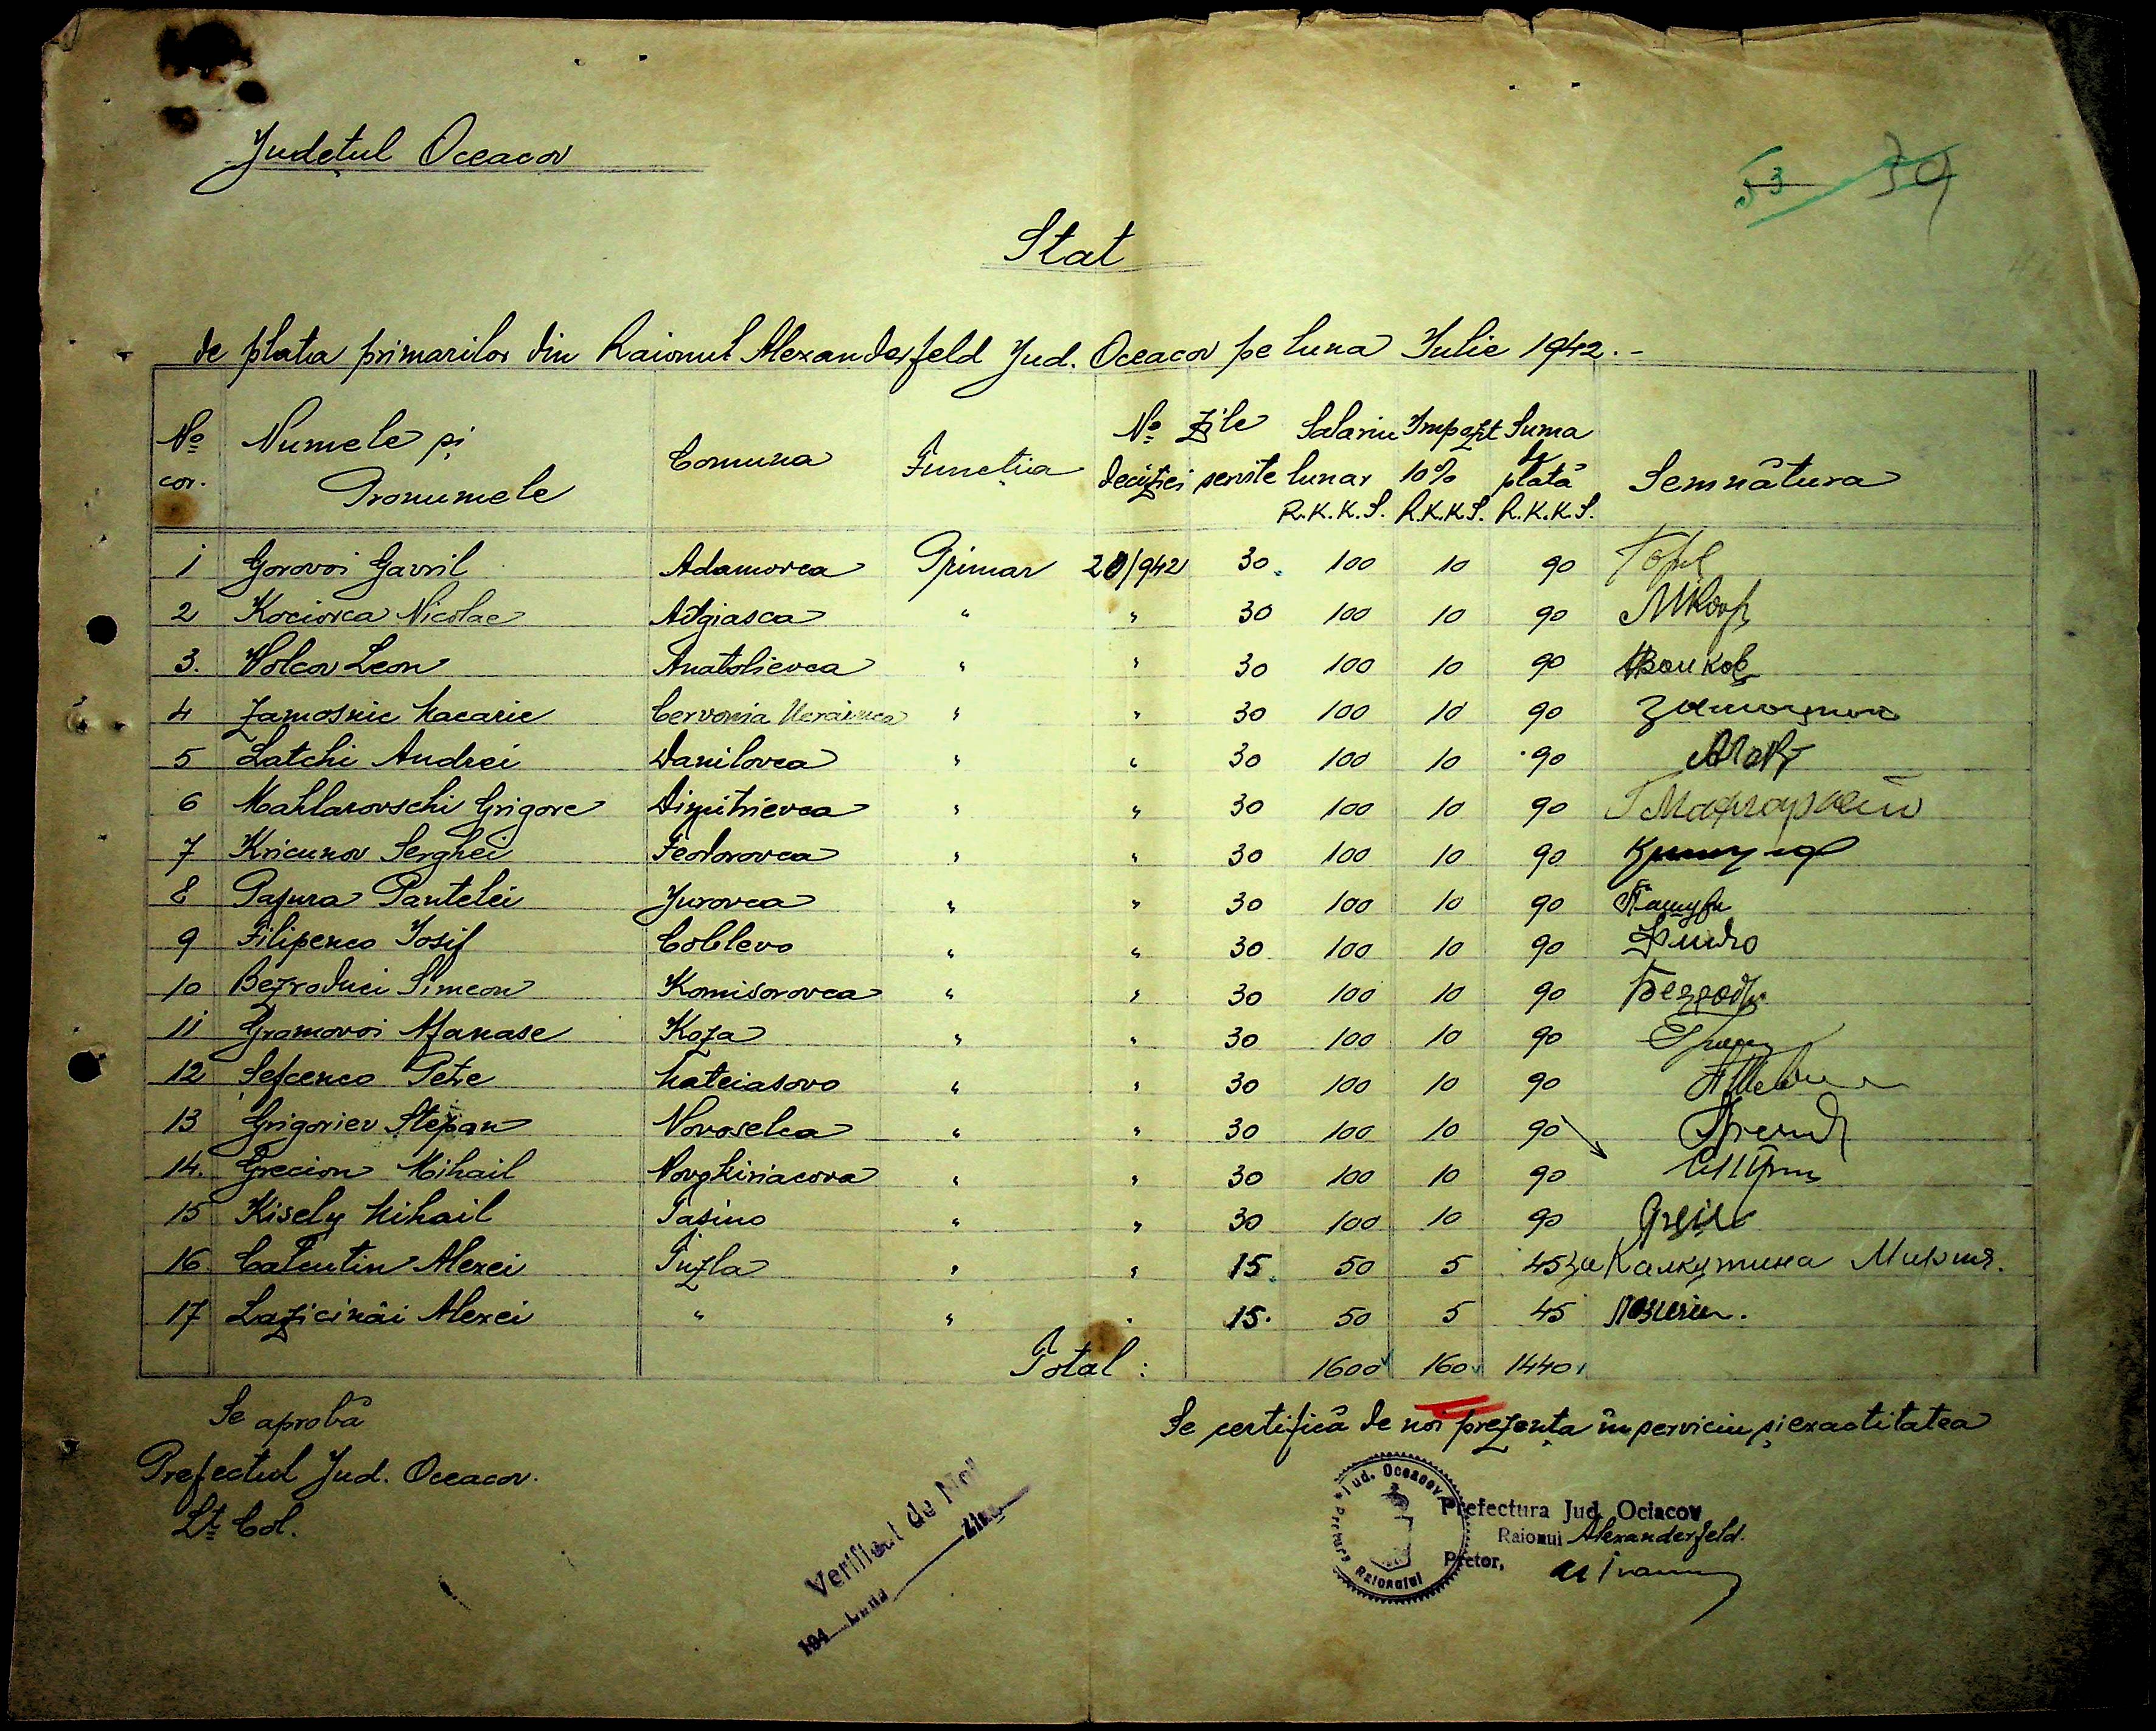 Județul Oceacov
53 39
Stat
de plata primarilor din Raionul Alexanderfeld Jud. Oceacov pe luna Iulie 1942.-
No cor. Numele și Pronumele Comuna Funcția No deciziei Zile servite Salariu lunar R.K.K.S. Impozit 10% R.K.K.S. Suma de plată R.K.K.S. Semnătura
1 Gorovoi Gavril Adamovca Primar 20/942 30 100 10 90
2 Kociovca Nicolae Adgiasca " " 30 100 10 90
3. Volcov Leon Anatolievca " " 30 100 10 90 Волков
4 Zamosnic Macarie Cervonia Ucrainca " " 30 100 10 90
5 Latchi Andrei Danilovca " " 30 100 10 90
6 Mahlarovschi Grigore Dimitrievca " " 30 100 10 90
7 Kricunov Serghei Feodorovca " " 30 100 10 90
8 Pașura Pantelei Jurovca " " 30 100 10 90 Пашура
9 Filipenco Iosif Coblevo " " 30 100 10 90
10 Bezroduci Simeon Komisorovca " " 30 100 10 90
11 Gramovoi Afanase Koza " " 30 100 10 90
12 Șefcenco Petre Mateiasovo " " 30 100 10 90
13 Grigoriev Stepan Novoselca " " 30 100 10 90
14. Grecion Mihail Novghiriacova " " 30 100 10 90
15 Kisely Mihail Tașino " " 30 100 10 90
16 Calcutin Alexei Tuzla " " 15. 50 5 45 за Калкутина Мария.
17 Lazicinâi Alexei " " " 15. 50 5 45
Total: 1600 160 1440
Se aprobă
Prefectul Jud. Oceacov.
Lt. Col.
Verificat de Noi
194 Luna Ziua
Se certifică de noi prezența în serviciu și exactitatea
Jud. Oceacov Pretura Raionului
Prefectura Jud. Ociacov
Raionul Alexanderfeld.
Pretor,